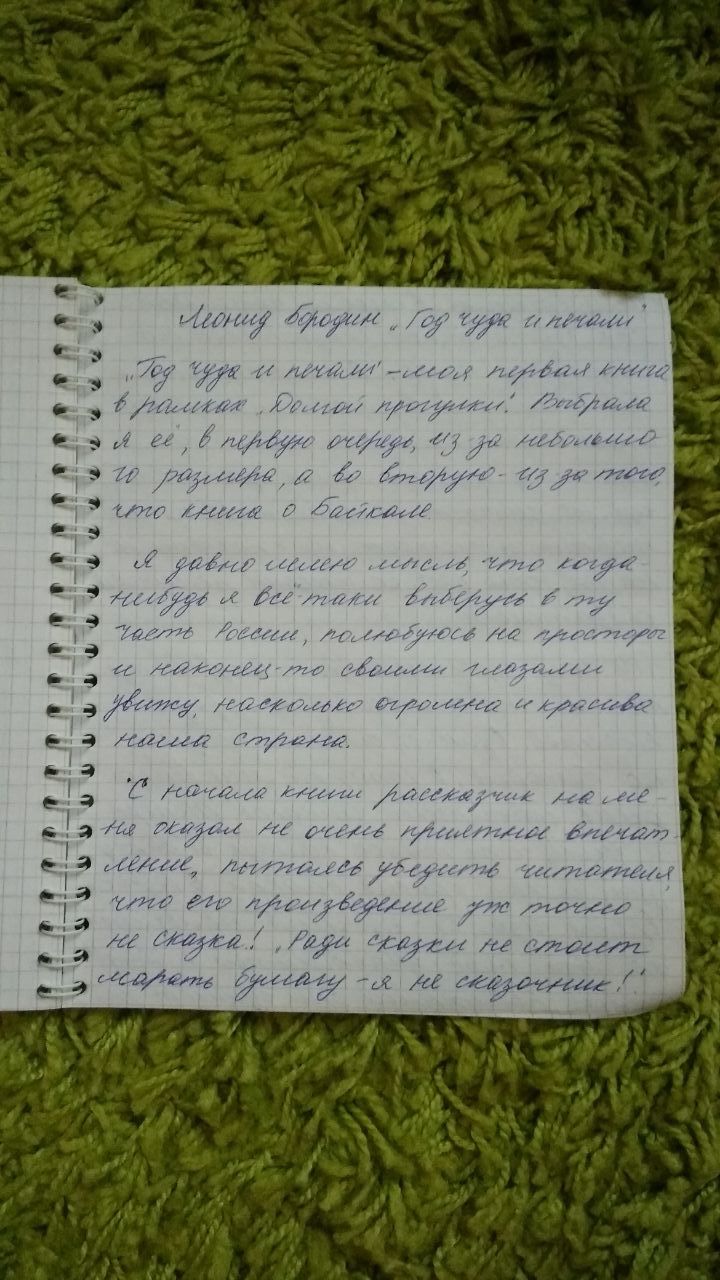 Леонид Бородин „Год чуда и печали"
„Год чуда и печали" – моя первая книга
в рамках „Долгой прогулки". Выбрала
я её, в первую очередь, из-за небольшо-
го размера, а во вторую – из-за того,
что книга о Байкале.
Я давно лелею мысль, что когда-
нибудь я всё-таки выберусь в ту
часть России, полюбуюсь на просторы
и наконец-то своими глазами
увижу, насколько огромна и красива
наша страна.
С начала книги рассказчик на ме-
ня оказал не очень приятное впечат-
ление, пытаясь убедить читателя,
что его произведение уж точно
не сказка! „Ради сказки не стоит
марать бумагу – я не сказочник!"